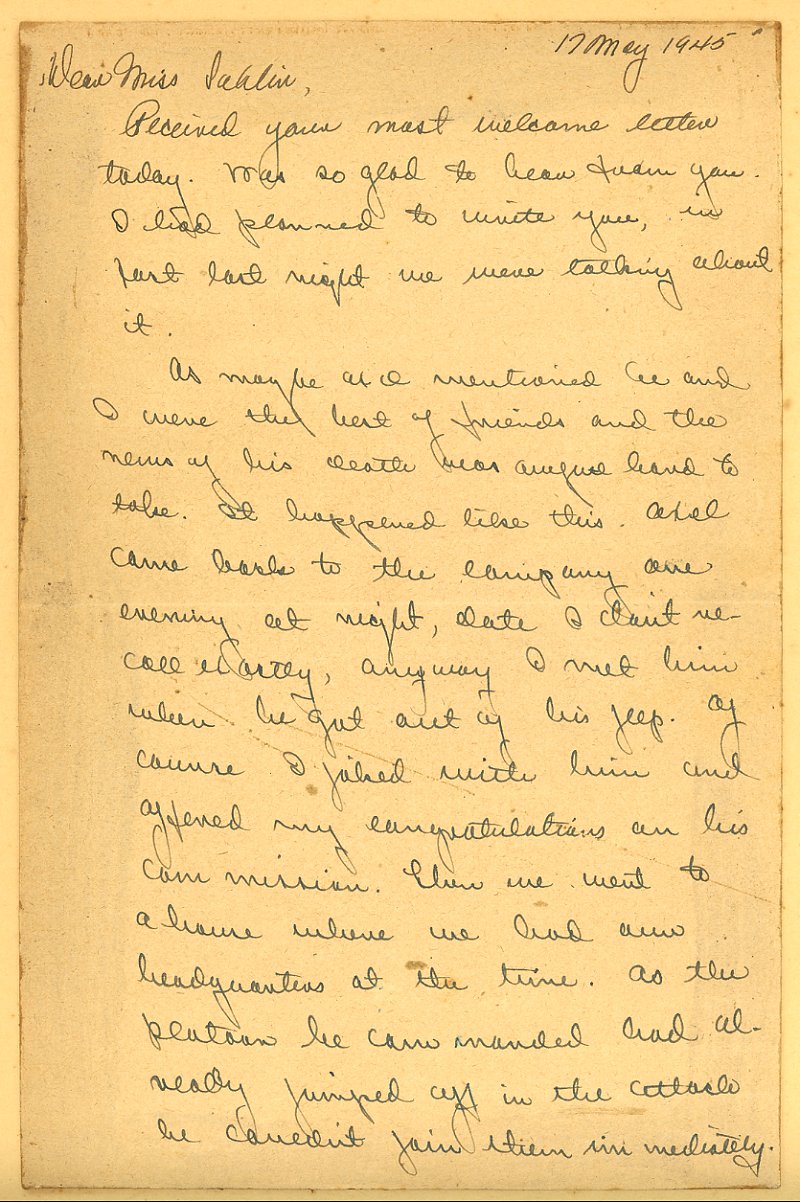 17 May 1945
Dear Miss Sahlin,
Received your most welcome letter
today. Was so glad to hear from you.
I had planned to write you, in
fact last night we were talking about
it.
As maybe Axel mentioned he and
I were the best of friends and the
news of his death was awful hard to
take. It happened like this. Axel
came back to the company one
evening at night, date I don't re-
call exactly, anyway I met him
when he got out of his jeep. Of
course I joked with him and
offered my congratulations on his
commission. Then we went to
a house where we had our
headquarters at the time. As the
platoon he commanded had al-
ready jumped off in the attack
he couldn't join them immediately.